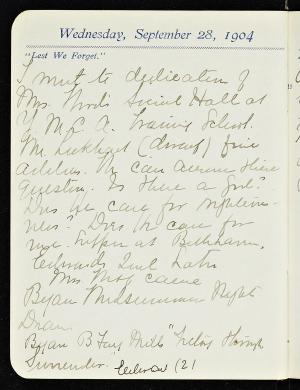 Wednesday, September 28, 1904
"Lest We Forget."
I went to dedication of
Mrs. Social Hall at
Y. M. C. A. Training School.
Mr. (        ) fine
address. We can answer these
question. Is there a God?
Does he care for righteous-
ness? Does he care for
me. Supper at
Edwards And
Mrs May came
Began Midsummer Night
Dream
Began B Fay Mills "Victory through
Surrender." (21